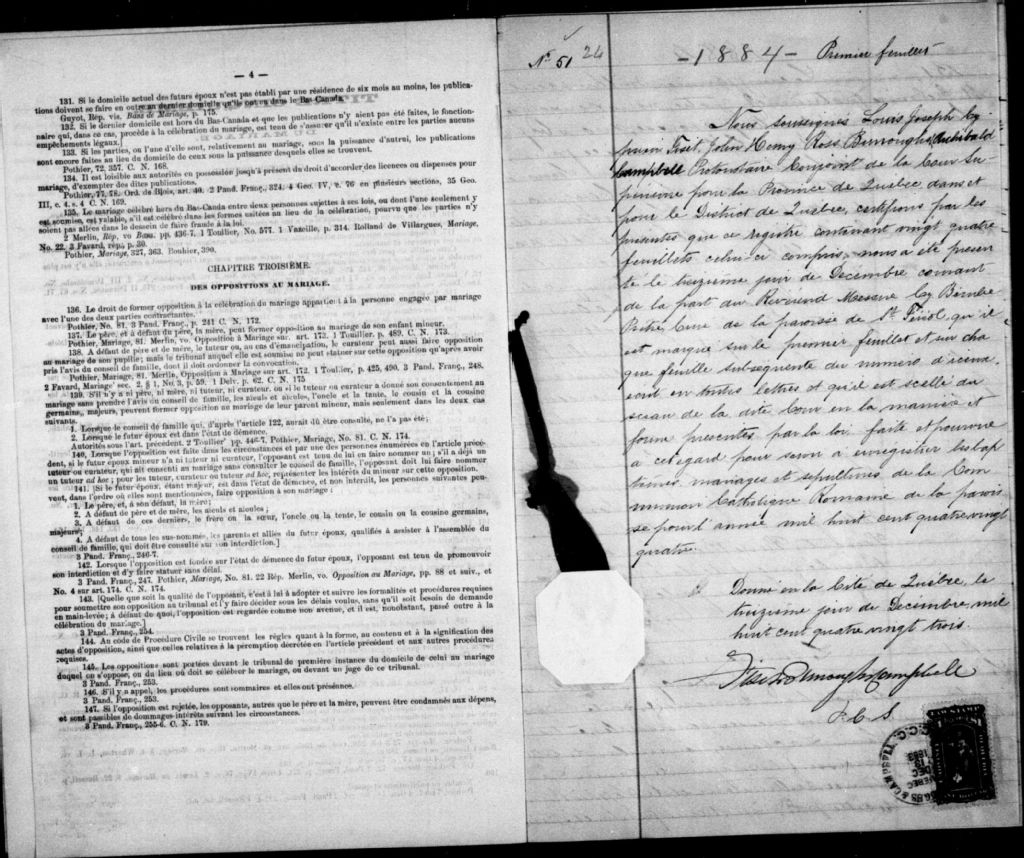 — 4 —
131. Si le domicile actuel des futurs époux n'est pas établi par une résidence de six mois au moins, les publica-
tions doivent se faire en outre au dernier domicile qu'ils ont eu dans le Bas-Canada.
Guyot, Rép. vis. Bans de Mariage, p. 175.
132. Si le dernier domicile est hors du Bas-Canada et que les publications n'y aient pas été faites, le fonction-
naire qui, dans ce cas, procède à la célébration du mariage, est tenu de s'assurer qu'il n'existe entre les parties aucuns
empêchements légaux.]
133. Si les parties, ou l'une d'elle sont, relativement au mariage, sous la puissance d'autrui, les publications
sont encore faites au lieu du domicile de ceux sous la puissance desquels elles se trouvent.
Pothier, 72, 357. C. N. 168.
134. Il est loisible aux autorités en possession jusqu'à présent du droit d'accorder des licences ou dispenses pour
mariage, d'exempter des dites publications.
Pothier, 77, 78. Ord. de Blois, art. 40. 2 Pand. Franç., 324. 4 Geo. IV, c. 76 en plusieurs sections, 35 Geo.
III, c. 4, s. 4 C. N. 169.
135. Le mariage célébré hors du Bas-Canada entre deux personnes sujettes à ses lois, ou dont l'une seulement y
est soumise, est valable, s'il est célébré dans les formes usitées au lieu de la célébration, pourvu que les parties n'y
soient pas allées dans le dessein de faire fraude à la loi.
2 Merlin, Rép. vo Bans, pp. 436-7. 1 Toullier, No. 577. 1 Vazeille, p. 314. Rolland de Villargues, Mariage,
No. 22. 3 Favard, rép., p. 30.
Pothier, Mariage, 327, 363. Bouhier, 390.
CHAPITRE TROISIÈME.
DES OPPOSITIONS AU MARIAGE.
136. Le droit de former opposition à la célébration du mariage appartient à la personne engagée par mariage
avec l'une des deux parties contractantes.
Pothier, No. 81. 3 Pand. Franç., p. 241 C. N. 172.
137. Le père, et à défaut du père, la mère, peut former opposition au mariage de son enfant mineur.
Pothier, Mariage, 81. Merlin, vo. Opposition à Mariage sur. art. 173. 1 Toullier, p. 489. C. N. 173.
138. A défaut de père et de mère, le tuteur ou, au cas d'émancipation, le curateur peut aussi faire opposition
au mariage de son pupille; mais le tribunal auquel elle est soumise ne peut statuer sur cette opposition qu'après avoir
pris l'avis du conseil de famille, dont il doit ordonner la convocation.
Pothier, Mariage, 81. Merlin, Opposition à Mariage sur art. 172. 1 Toullier, p. 425, 490. 3 Pand. Franç., 248.
2 Favard, Mariage sec. 2, § 1, No. 3, p. 59. 1 Delv. p. 62. C. N. 175
139. S'il n'y a ni père, ni mère, ni tuteur, ni curateur, ou si le tuteur ou curateur a donné son consentement au
mariage sans prendre l'avis du conseil de famille, les aïeuls et aïeules, l'oncle et la tante, le cousin et la cousine
germains, majeurs, peuvent former opposition au mariage de leur parent mineur, mais seulement dans les deux cas
suivants.
1. Lorsque le conseil de famille qui, d'après l'article 122, aurait dû être consulté, ne l'a pas été;
2. Lorsque le futur époux est dans l'état de démence.
Autorités sous l'art. précédent. 2 Toullier pp. 446-7, Pothier, Mariage, No. 81. C. N. 174.
140. Lorsque l'opposition est faite dans les circonstances et par une des personnes énumérées en l'article précé-
dent, si le futur époux mineur n'a ni tuteur ni curateur, l'opposant est tenu de lui en faire nommer un; s'il a déjà un
tuteur ou curateur, qui ait consenti au mariage sans consulter le conseil de famille, l'opposant doit lui faire nommer
un tuteur ad hoc; pour les tuteur, curateur ou tuteur ad hoc, représenter les intérêts du mineur sur cette opposition.
141. [Si le futur époux, étant majeur, est dans l'état de démence, et non interdit, les personnes suivantes peu-
vent, dans l'ordre où elles sont mentionnées, faire opposition à son mariage:
1. Le père, et, à son défaut, la mère;
2. A défaut de père et de mère, les aïeuls et aïeules;
3. A défaut de ces derniers, le frère ou la sœur, l'oncle ou la tente, le cousin ou la cousine germains,
majeurs;
4. A défaut de tous les sus-nommés, les parents et alliés du futur époux, qualifiés à assister à l'assemblée du
conseil de famille, qui doit être consulté sur son interdiction.]
3 Pand. Franç., 246-7.
142. Lorsque l'opposition est fondée sur l'état de démence du futur époux, l'opposant est tenu de promouvoir
son interdiction et d'y faire statuer sans délai.
3 Pand. Franç., 247. Pothier, Mariage, No. 81. 22 Rép. Merlin, vo. Opposition au Mariage, pp. 88 et suiv., et
No. 4 sur art. 174. C. N. 174.
143. [Quelle que soit la qualité de l'opposant, c'est à lui à adopter et suivre les formalités et procédures requises
pour soumettre son opposition au tribunal et l'y faire décider sous les délais voulus, sans qu'il soit besoin de demande
en main-levée; à défaut de quoi, l'opposition est regardée comme non avenue, et il est, nonobstant, passé outre à la
célébration du mariage.]
3 Pand. Franç., 254.
144. Au code de Procédure Civile se trouvent les règles quant à la forme, au contenu et à la signification des
actes d'opposition, ainsi que celles relatives à la péremption décrétée en l'article précédent et aux autres procédures
requises.
145. Les oppositions sont portées devant le tribunal de première instance du domicile de celui au mariage
duquel on s'oppose, ou du lieu où doit se célébrer le mariage, ou devant un juge de ce tribunal.
3 Pand. Franç., 253.
146. S'il y a appel, les procédures sont sommaires et elles ont préséance.
3 Pand. Franç., 253.
147. Si l'opposition est rejetée, les opposants, autres que le père et la mère, peuvent être condamnés aux dépens,
et sont passibles de dommages-intérêts suivant les circonstances.
3 Pand. Franç., 255-6. C. N. 179.
No 51 24 — 1884 — Premier feuillet
Nous soussignés Louis Joseph Cy-
prien Fiset, John Henry Ross Burroughs & Archibald
Campbell Protonotaire Conjoint de la Cour Su-
périeure pour la Province de Québec, dans et
pour le District de Québec, certifions par les
présentes que ce registre contenant vingt quatre
feuillets celui-ci compris, nous a été présen-
té le treizième jour de Décembre courant
de la part du Révérend Messire Cy Bérubé
Prêtre, Curé de la paroisse de St Fériol, qu'il
est marqué sur le premier feuillet et sur cha
que feuille subsequente du numéro d'icelui
écrit en toutes lettres et qu'il est scellé du
sceau de la dite Cour en la manière et
forme présentes par la loi faite et pourvue
à cet égard pour servir à enregistrer les bap
têmes, mariages et sépultures de la Com
munion Catholique Romaine de la parois
se pour l'année mil huit cent quatre vingt
quatre.
Donné en la Cité de Québec, le
treizième jour de Décembre, mil
huit cent quatre vingt trois.
Fiset Burroughs Campbell
P. C. S.